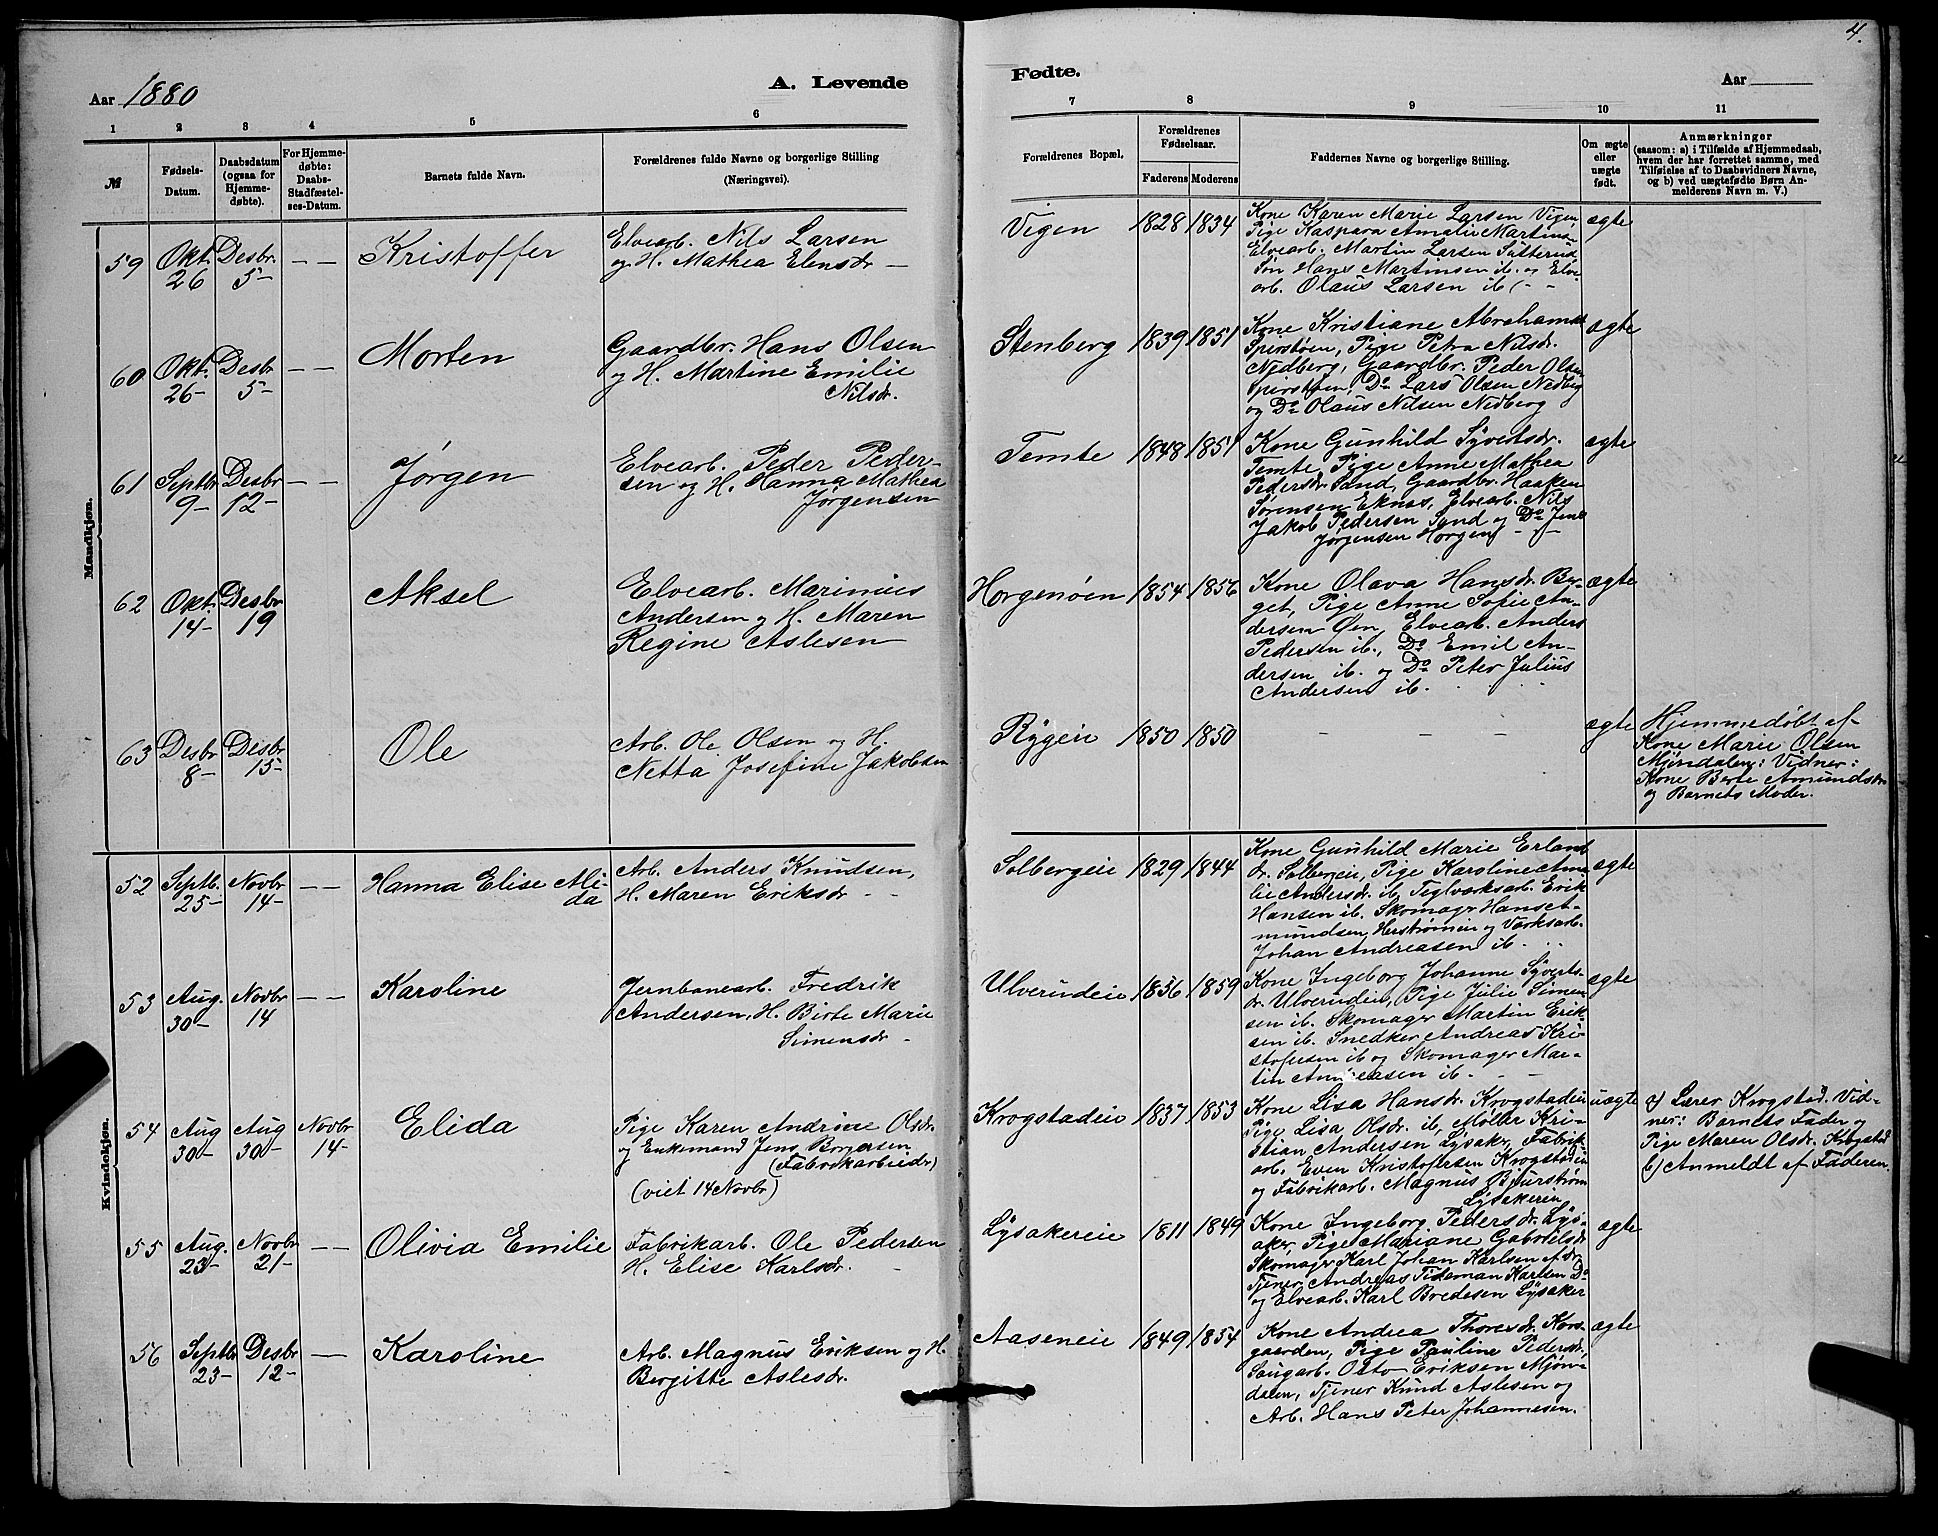 4.
Aar 1880
A. Levende
Fødte.
Aar
1 2 3 4 5 6 7 8 9 10 11
№
Fødsels-
Datum.
Daabsdatum
(ogsaa for
Hjemme-
døbte).
For Hjemme-
døbte:
Daabs-
Stadfæstel-
ses-Datum.
Barnets fulde Navn.
Forældrenes fulde Navne og borgerlige Stilling
(Næringsvei).
Forældrenes Bopæl.
Forældrenes
Fødselsaar.
Faderens Moderens
Faddernes Navne og borgerlige Stilling.
Om ægte
eller
uægte
født.
Anmærkninger
(saasom: a) i Tilfælde af Hjemmedaab,
hvem der har forrettet samme, med
Tilføielse af to Daabsvidners Navne,
og b) ved uægtefødte Børn An-
melderens Navn m. V.)
Mandkjøn.
59
Okt.
26
Desbr.
5-
- -
Kristoffer
Elvearb. Nils Larsen
og H. Mathea Elensdr -
Vigen
1828 1834
Kone Karen Marie Larsen Vigen,
Pige Kaspara Amalie Martins-
Elvearb. Martin Larsen Sætterud,
Søn Hans Martinsen ib. og Elve
arb. Olaus Larsen ib.
ægte
60
Okt.
26-
Desbr
5-
- -
Morten
Gaardbr. Hans Olsen
og H. Martine Emilie
Nilsdr.
Stenberg
1839 1851
Kone Kristiane Abrahams
Spirstøen, Pige Petra Nilsdr.
Nedberg, Gaardbr. Peder Olsen
Spirstøen, Do Lars Olsen Nedberg
og Do Olaus Nilsen Nedberg
ægte
61
Septbr
9-
Desbr
12-
- -
Jørgen
Elvearb. Peder Peder-
sen og H. Hanna Mathea
Jørgensen
Temte
1848 1851
Kone Gunhild Syvertsdr.
Temte, Pige Anne Mathea
Pedersdr Sand, Gaardbr. Haaken
Sørensen Eknæs, Elvearb. Nils
Jakob Pedersen Sand og Do Jens
Jørgensen Horgen
ægte
62
Okt.
14-
Desbr
19
Aksel
Elvearb. Marinius
Andersen og H. Maren
Regine Aslesen
Horgenøen
1854 1856
Kone Olava Hansdr. Ber-
get, Pige Anne Sofie An-
dersen Øen, Elvearb. Anders
Pedersen ib., Do Emil An-
dersen ib. og Do Peter Julius
Andersen ib.
ægte
63
Desbr
8-
Desbr
15-
Ole
Arb. Ole Olsen og H.
Netta Josefine Jakobsen
Rygeie
1850 1850
- - -
ægte
Hjemmedøbt af
Kone Marie Olsen
Mjøndalen: Vidner:
Kone Berte Amundsdr.
og Barnets Moder.
Kvindekjøn.
52
Septb.
25-
Novbr
14-
- -
Hanna Elise Ali-
da
Arb. Anders Knudsen,
H. Maren Eriksdr -
Solbergeie
1829 1844
Kone Gunhild Marie Erlands
dr. Solbergeie, Pige Karoline Ama
lie Andersdr. ib. Teglværksarb. Erik
Hansen ib. Skomager Hans A-
mundsen, Herstrømeie og Værksarb.
Johan Andreasen ib.
ægte
53
Aug.
30-
Novbr
14
- -
Karoline
Jernbanearb. Fredrik
Andersen, H. Birte Marie
Simensdr -
Ulverudeie
1856 1859
Kone Ingeborg Johanne Syverts-
dr. Ulverudeie, Pige Julie Simen
sen ib. Skomager Martin Erik-
sen ib. Snedker Andreas Kri-
stofersen ib og Skomager Mar-
tin Andreasen ib. -
ægte
54
Aug
30-
Aug
30-
Novbr
14-
Elida
Pige Karen Andrine Olsdr.
og Enkemand Jens Borgersen
(Fabrikarbeider)
(viet 14 Novbr)
Krogstadeie
1837 1853
Kone Lisa Hansdr. Krogstadeie
Pige Lisa Olsdr. ib, Møller Kri-
stian Andersen Lysaker, Fabrik-
arb. Even Kristofersen Krogstadeie
og Fabrikarb. Magnus Bjurstrøm
Lysakereie
uægte
a) Lærer Krogstad. Vid-
ner: Barnets Fader og
Pige Maren Olsdr. Krogstad
b) Anmeldt af Faderen.
55
Aug.
23-
Novbr
21-
- -
Olivia Emilie
Fabrikarb. Ole Pedersen
H. Elise Karlsdr. -
Lysakereie
1811 1849
Kone Ingeborg Pedersdr. Lys-
aker, Pige Mariane Gabrielsdr
Skomager Karl Johan Karlsen
Tjener Andreas Tideman Karlsen Do
og Elvearb. Karl Bredesen Lysaker
ægte
56
Septbr
23-
Desbr
12-
Karoline
Arb. Magnus Eriksen og H.
Bergitte Aslesdr.
Aaseneie
1849 1854
Kone Andrea Thoresdr. Kors-
gaarden, Pige Pauline Pedersdr,
Saugarb. Otto Eriksen Mjøn-
dalen, Tjener Knud Aslesen og
Arb. Hans Peter Johannesen.
ægte